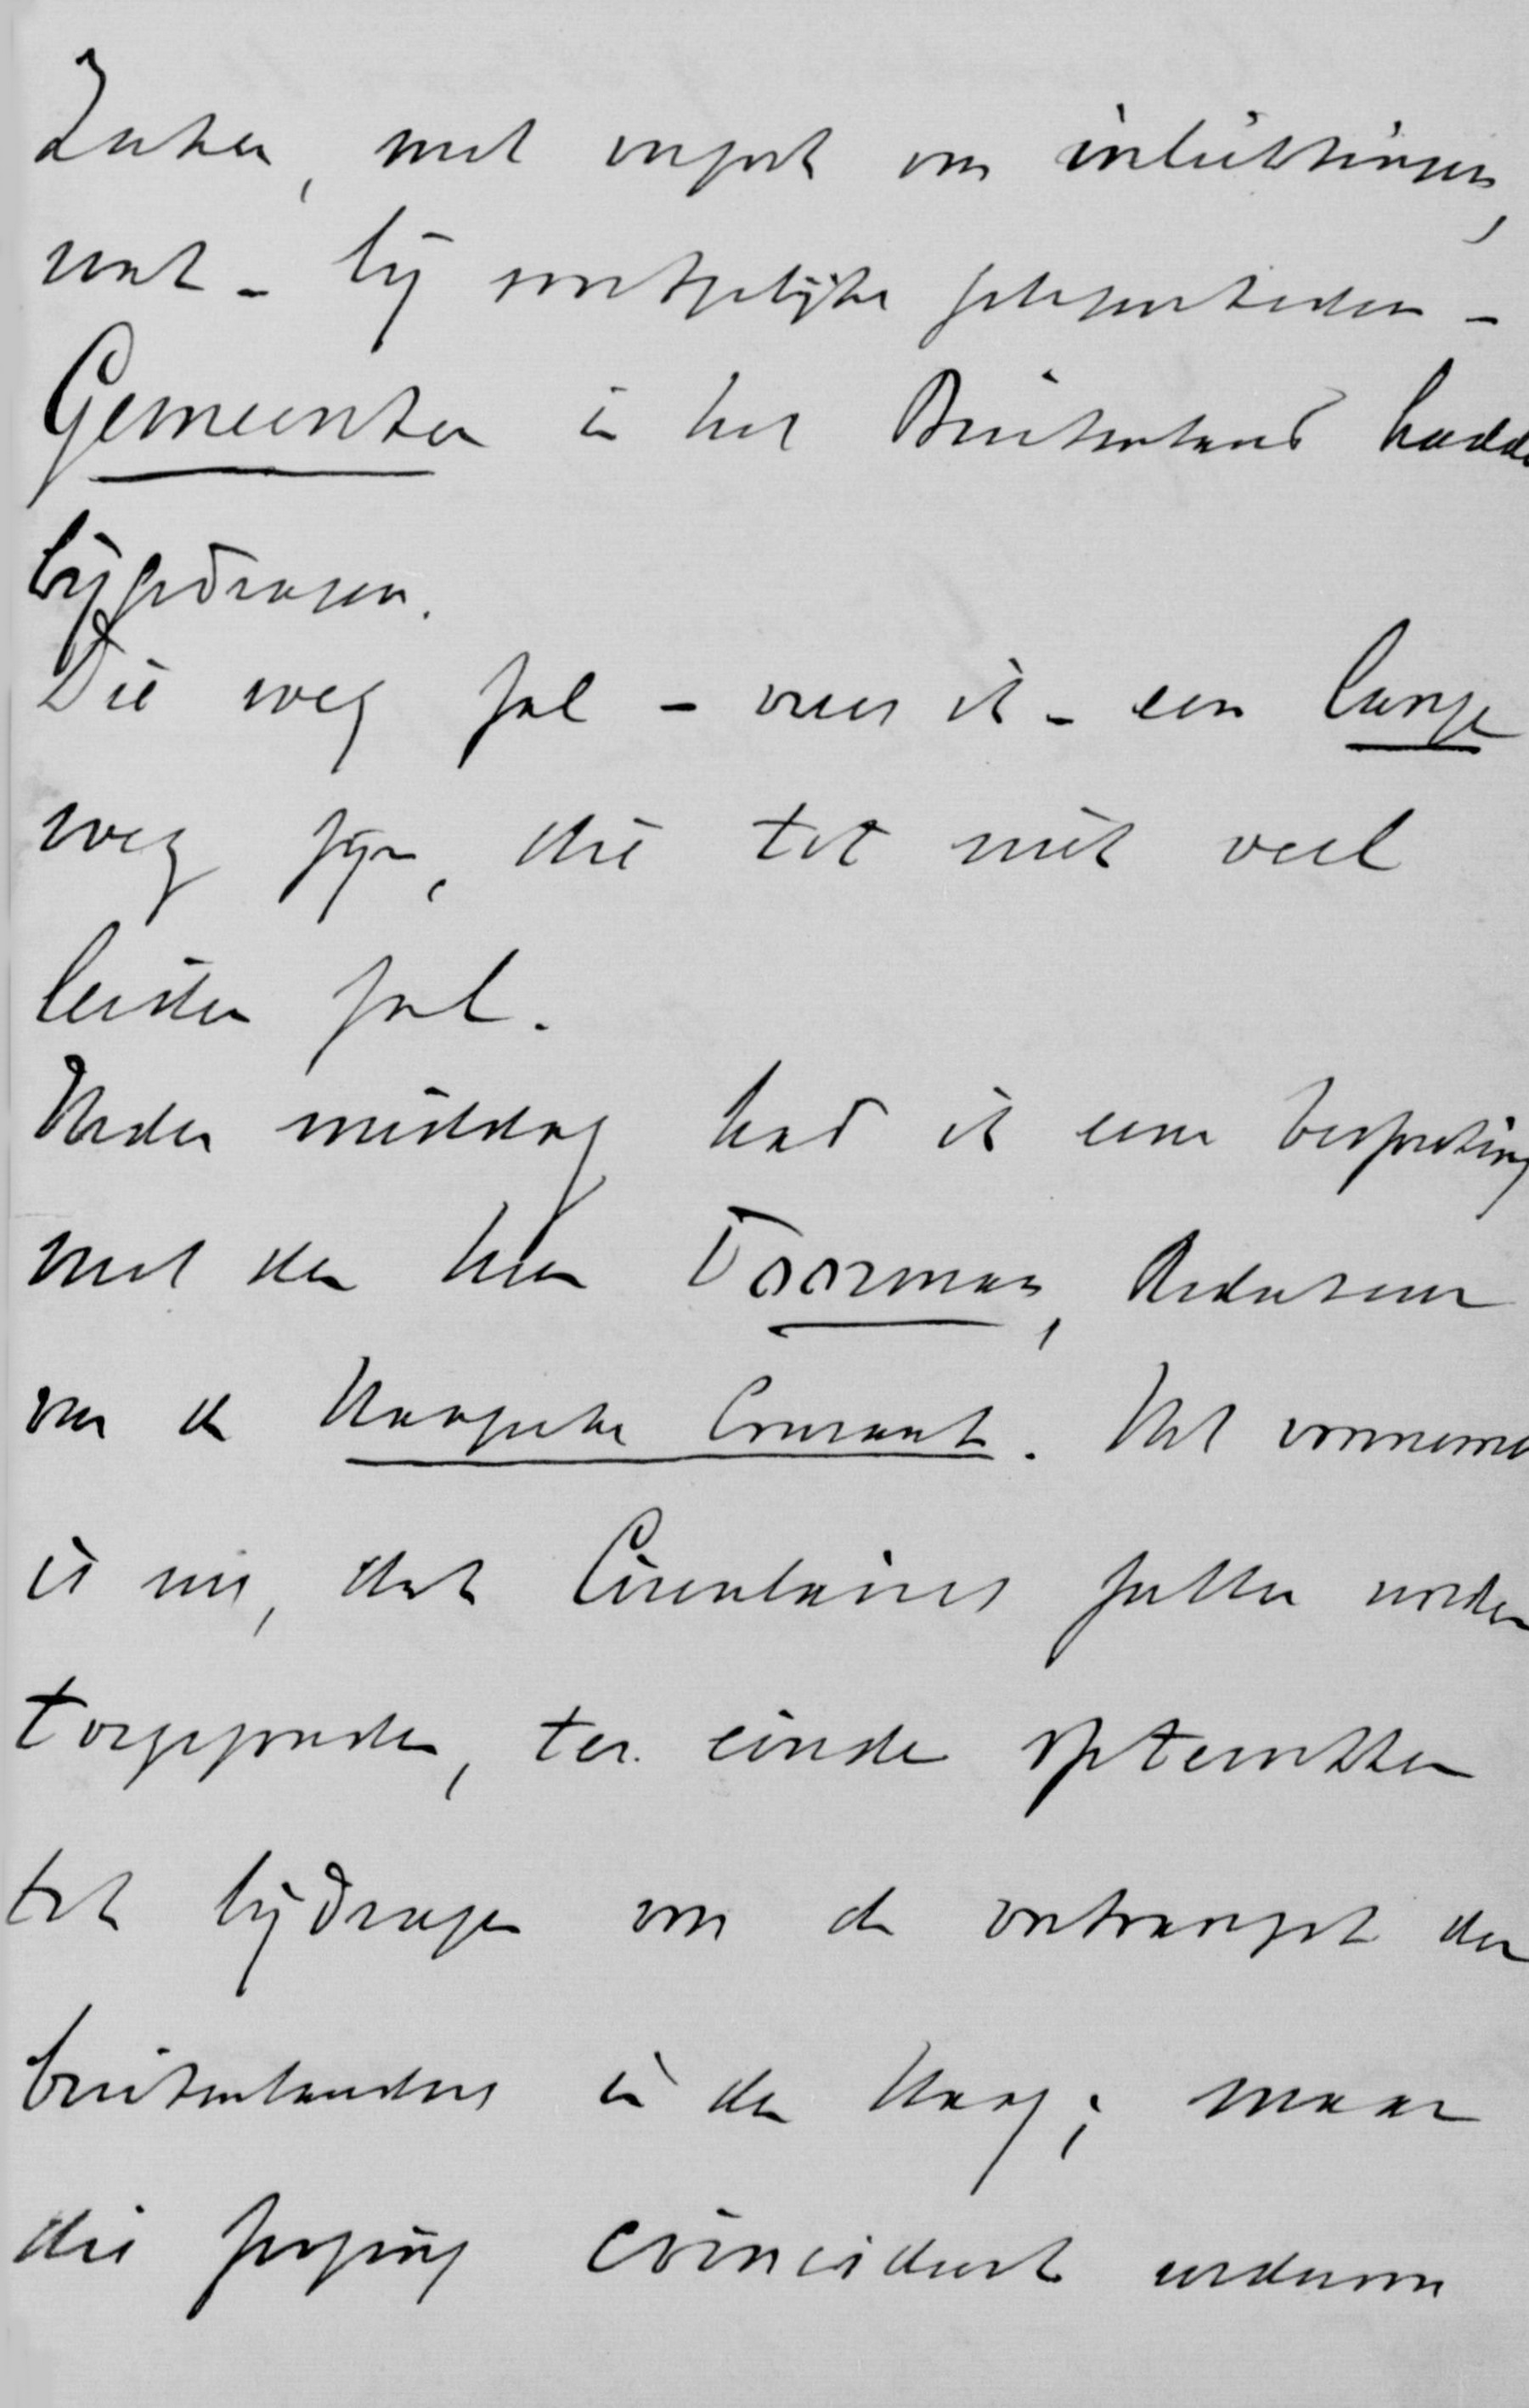 Zaken, met verzoek om inlichtingen,
wat - bij soortgelijke gelegenheden -
Gemeenten in het Buitenland hadden
bijgedragen.
Die weg zal - vrees ik - een lange
weg zijn, die tot niet veel
leiden zal.
Heden middag had ik eene bespreking
met den heer Doorman, Redacteur
van de Haagsche Courant. Het voornemen
is nu, dat Circulaires zullen worden
toegezonden, ten einde op te wekken
tot bijdragen voor de ontvangst der
buitenlanders in den Haag; maar
die poging coincideert wederom